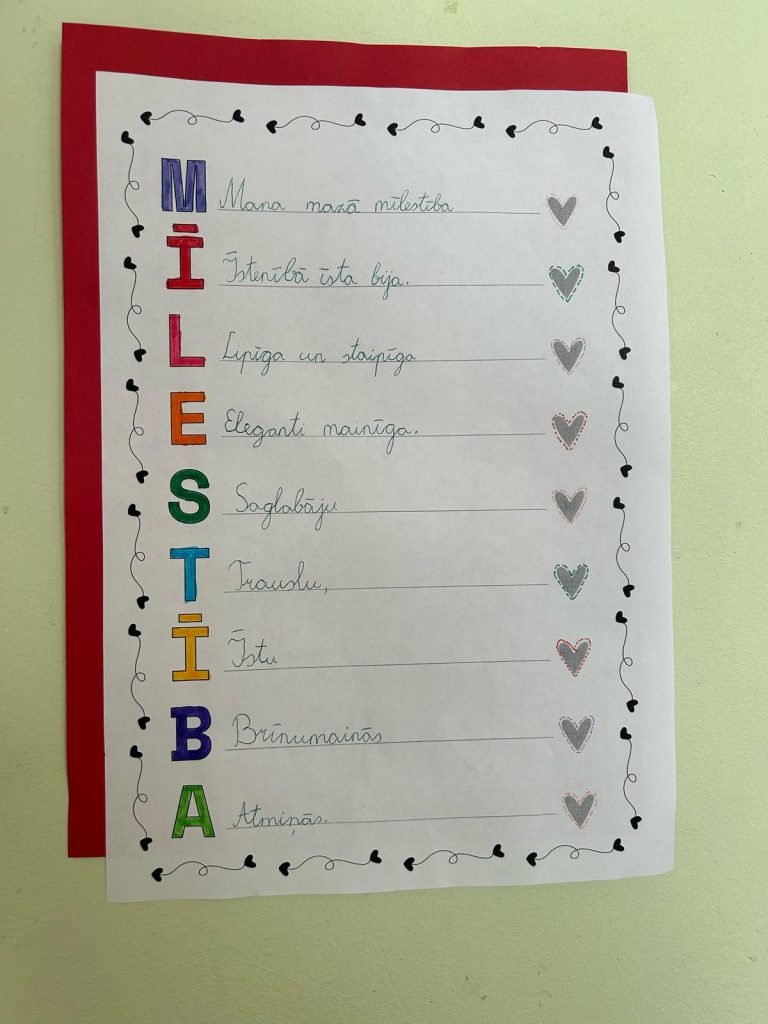 M Mana mazā mīlestība
Ī Īstenībā īsta bija.
L Lipīga un staipīga
E Eleganti mainīga.
S Saglabāju
T Trauslu,
Ī Īstu
B Brīnumainās
A Atmiņās.